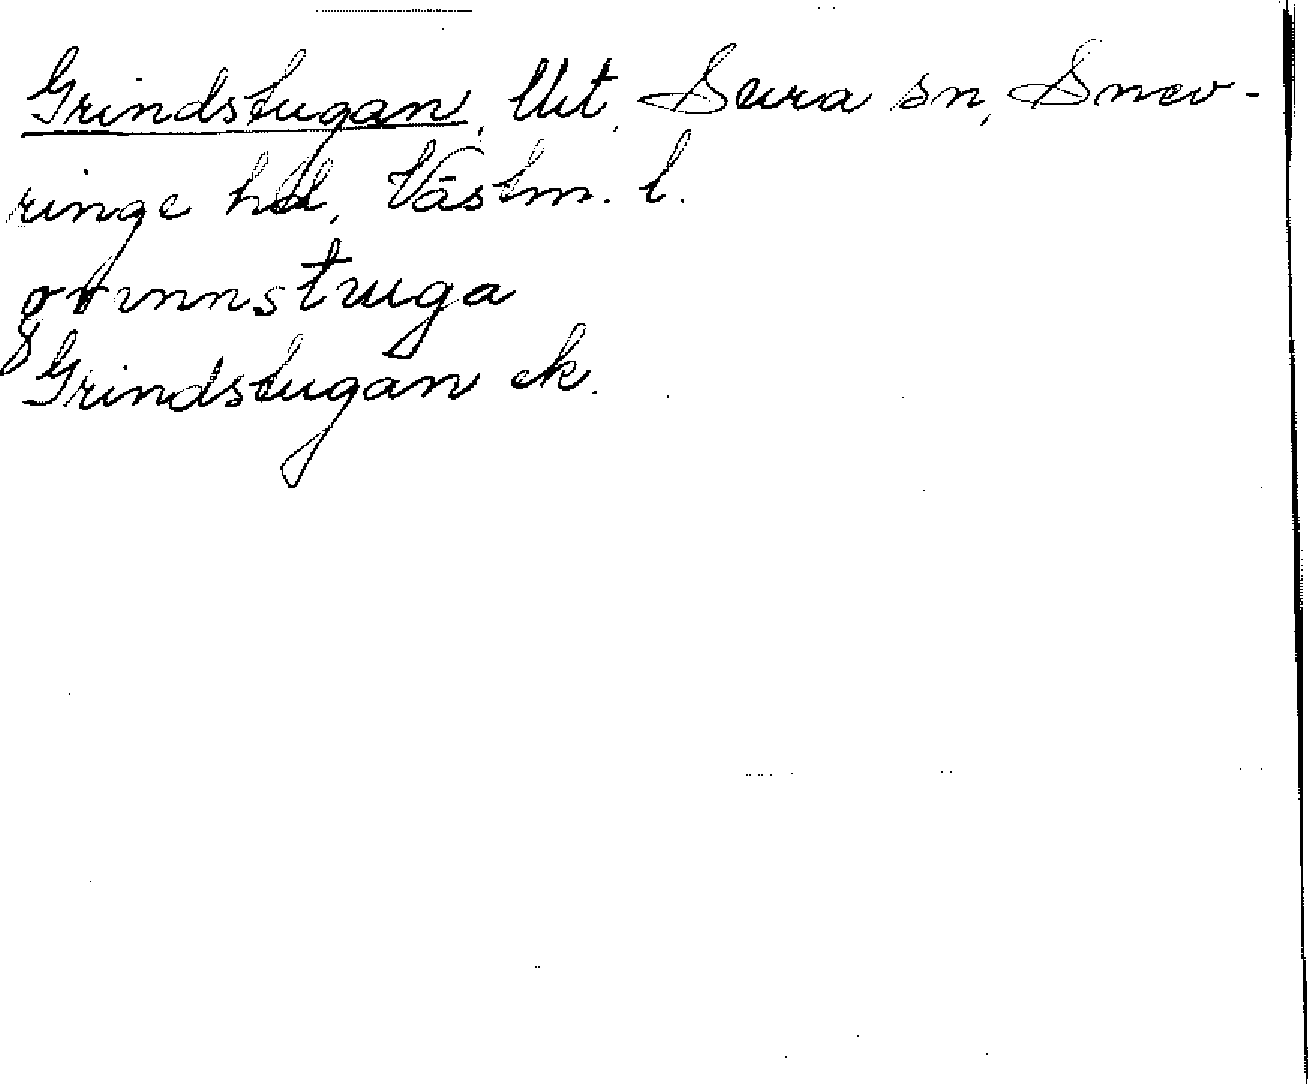 Grindstugan, Ut. Sura sn, Snev-
ringe hd, Västm. l.
grinnstuga
Grindstugan ek.